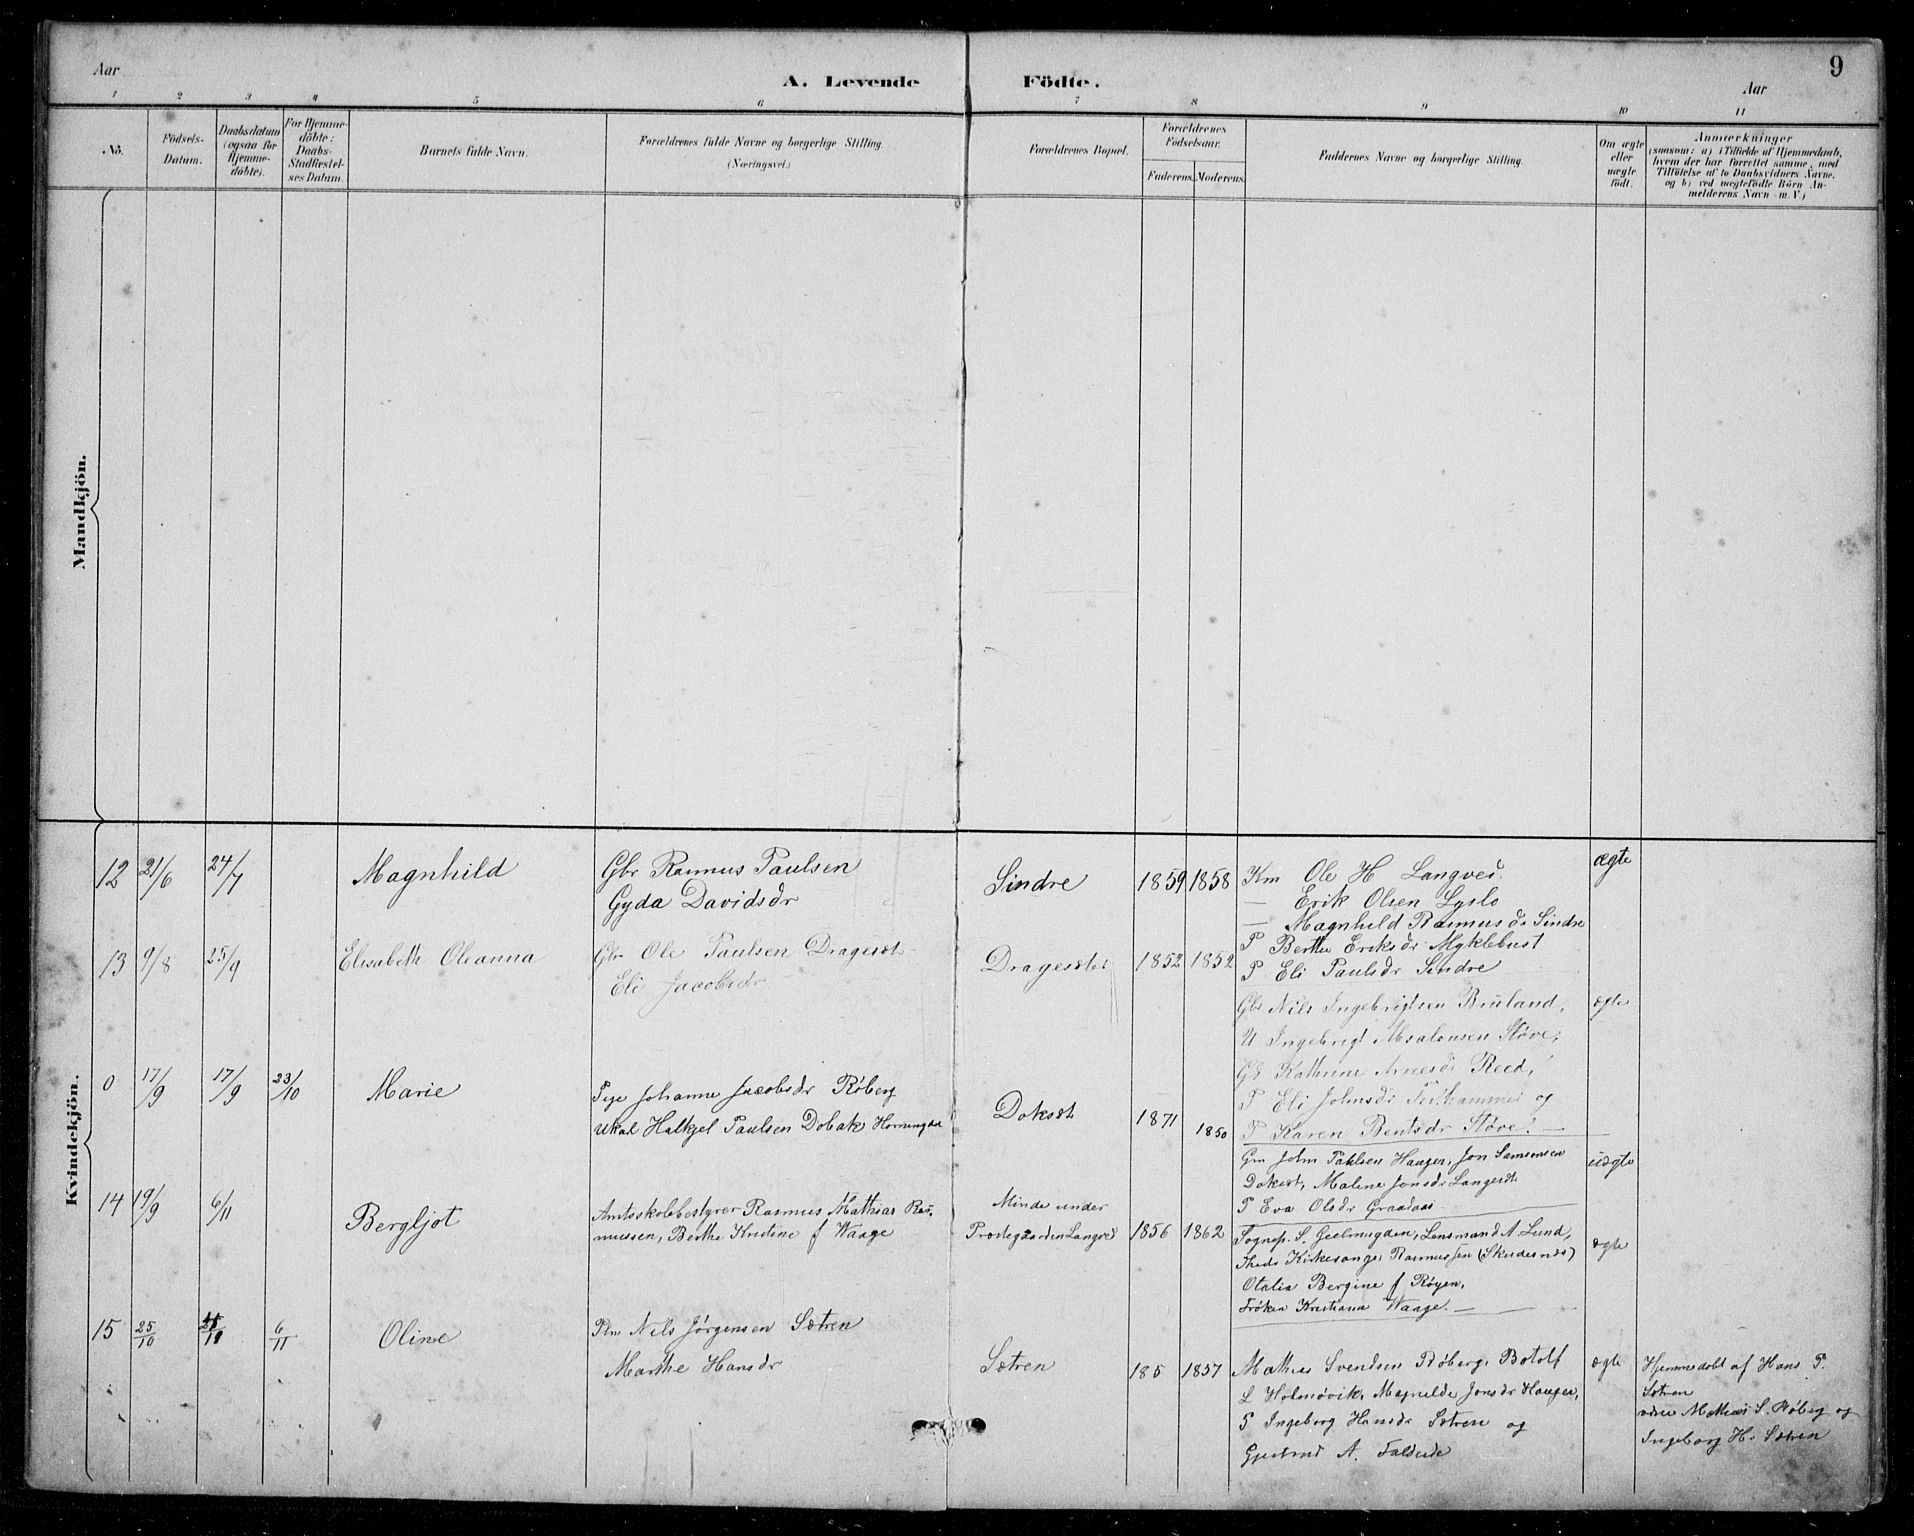 9
Aar
A. Levende Födte.
Aar
1 2 3 4 5 6 7 8 9 10 11
No.
Födsels-
Datum.
Daabsdatum
(ogsaa for
Hjemme-
döbte).
For Hjemme-
döbte:
Daabs-
Stadfæstel-
ses Datum.
Barnets fulde Navn.
Forældrenes fulde Navne og borgerlige Stilling.
(Næringsvei.)
Forældrenes Bopæl.
Forældrenes
Födselsaar.
Faderens. Moderens.
Faddernes Navne og borgerlige Stilling.
Om ægte
eller
uægte
födt.
Anmærkninger
(saasom: a) i Tilfælde af Hjemmedaab,
hvem der har forrettet samme, med
Tilföielse af to Daabsvidners Navne,
og b) ved uægtefödte Börn An-
melderens Navn m. V.)
Mandkjön.
Kvindekjön.
12 21/6 24/7 Magnhild
Gbr Rasmus Paulsen
Gyda Davidsdr
Sindre 1859 1858
Km Ole H Langved.
— Erik Olsen Lyslo
— Magnhild Rasmusdr Sindre
P Berthe Eriksdr Myklebust
P Eli Paulsdr Sindre
ægte
13 9/8 25/9 Elisabeth Oleanna
Gbr Ole Paulsen Dragesæt
Eli Jacobsdr
Dragesæt 1852 1852
Gbr Nils Ingebrigtsen Bruland,
U Ingebrigt Absalonsen Støve,
Kathrine Arnesdr Reed,
P Eli Johnsdr og
P Karen Bentsdr Støve. —
ægte
0 17/9 17/9 23/10 Marie
Pige Johanne Jacobsdr Røberg
Ukal Halkjel Paulsen Dobak
Doksæt 1871 1850
Gm John Paulsen Hauger, Jon Samsonsen
Doksæt, Malene Jonsdr Langesæt
P Eva Olsdr Graadaas
uægte
14 19/9 6/11 Bergljot
Amtsskolebestyrer Rasmus Mathias Ras-
mussen, Berthe Kristine f Waage
Minde under
Præstegaarden Langved
1856 1862
Sognep. S. Geelmuyden, Lensmand A. Lund,
Kirkesanger Rasmussen (Skudesnæs)
Otalia Bergine f Røyen,
Frøken Kristiana Waage. —
ægte
15 25/10 /10 6/11 Oline
Plm Nils Jørgensen Sætren
Marthe Hansdr
Sætren 185 1857
Mathias Svendsen Røberg, Botolf
L Holmøvik, Magnilde Jonsdr Hauger,
P Ingeborg Hansdr Sætren og
Gjertrud A. Faldeide
ægte
Hjemmedøbt af Hans P.
Sætren
Mathias S. Røberg og
Ingeborg H. Sætren